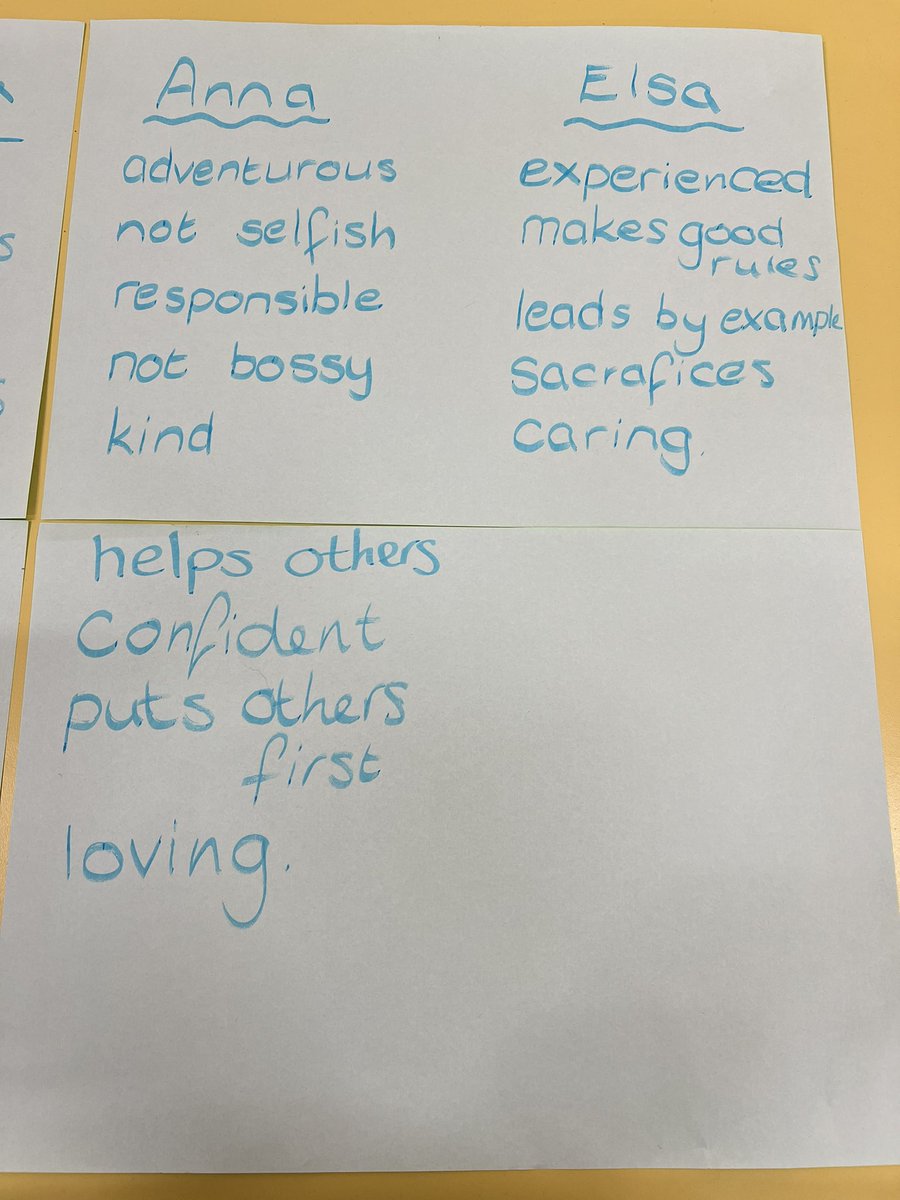 Anna
adventurous
not selfish
responsible
not bossy
kind
helps others
Confident
puts others
first
loving.
Elsa
experienced
makes good
rules
leads by example
Sacrafices
Caring.